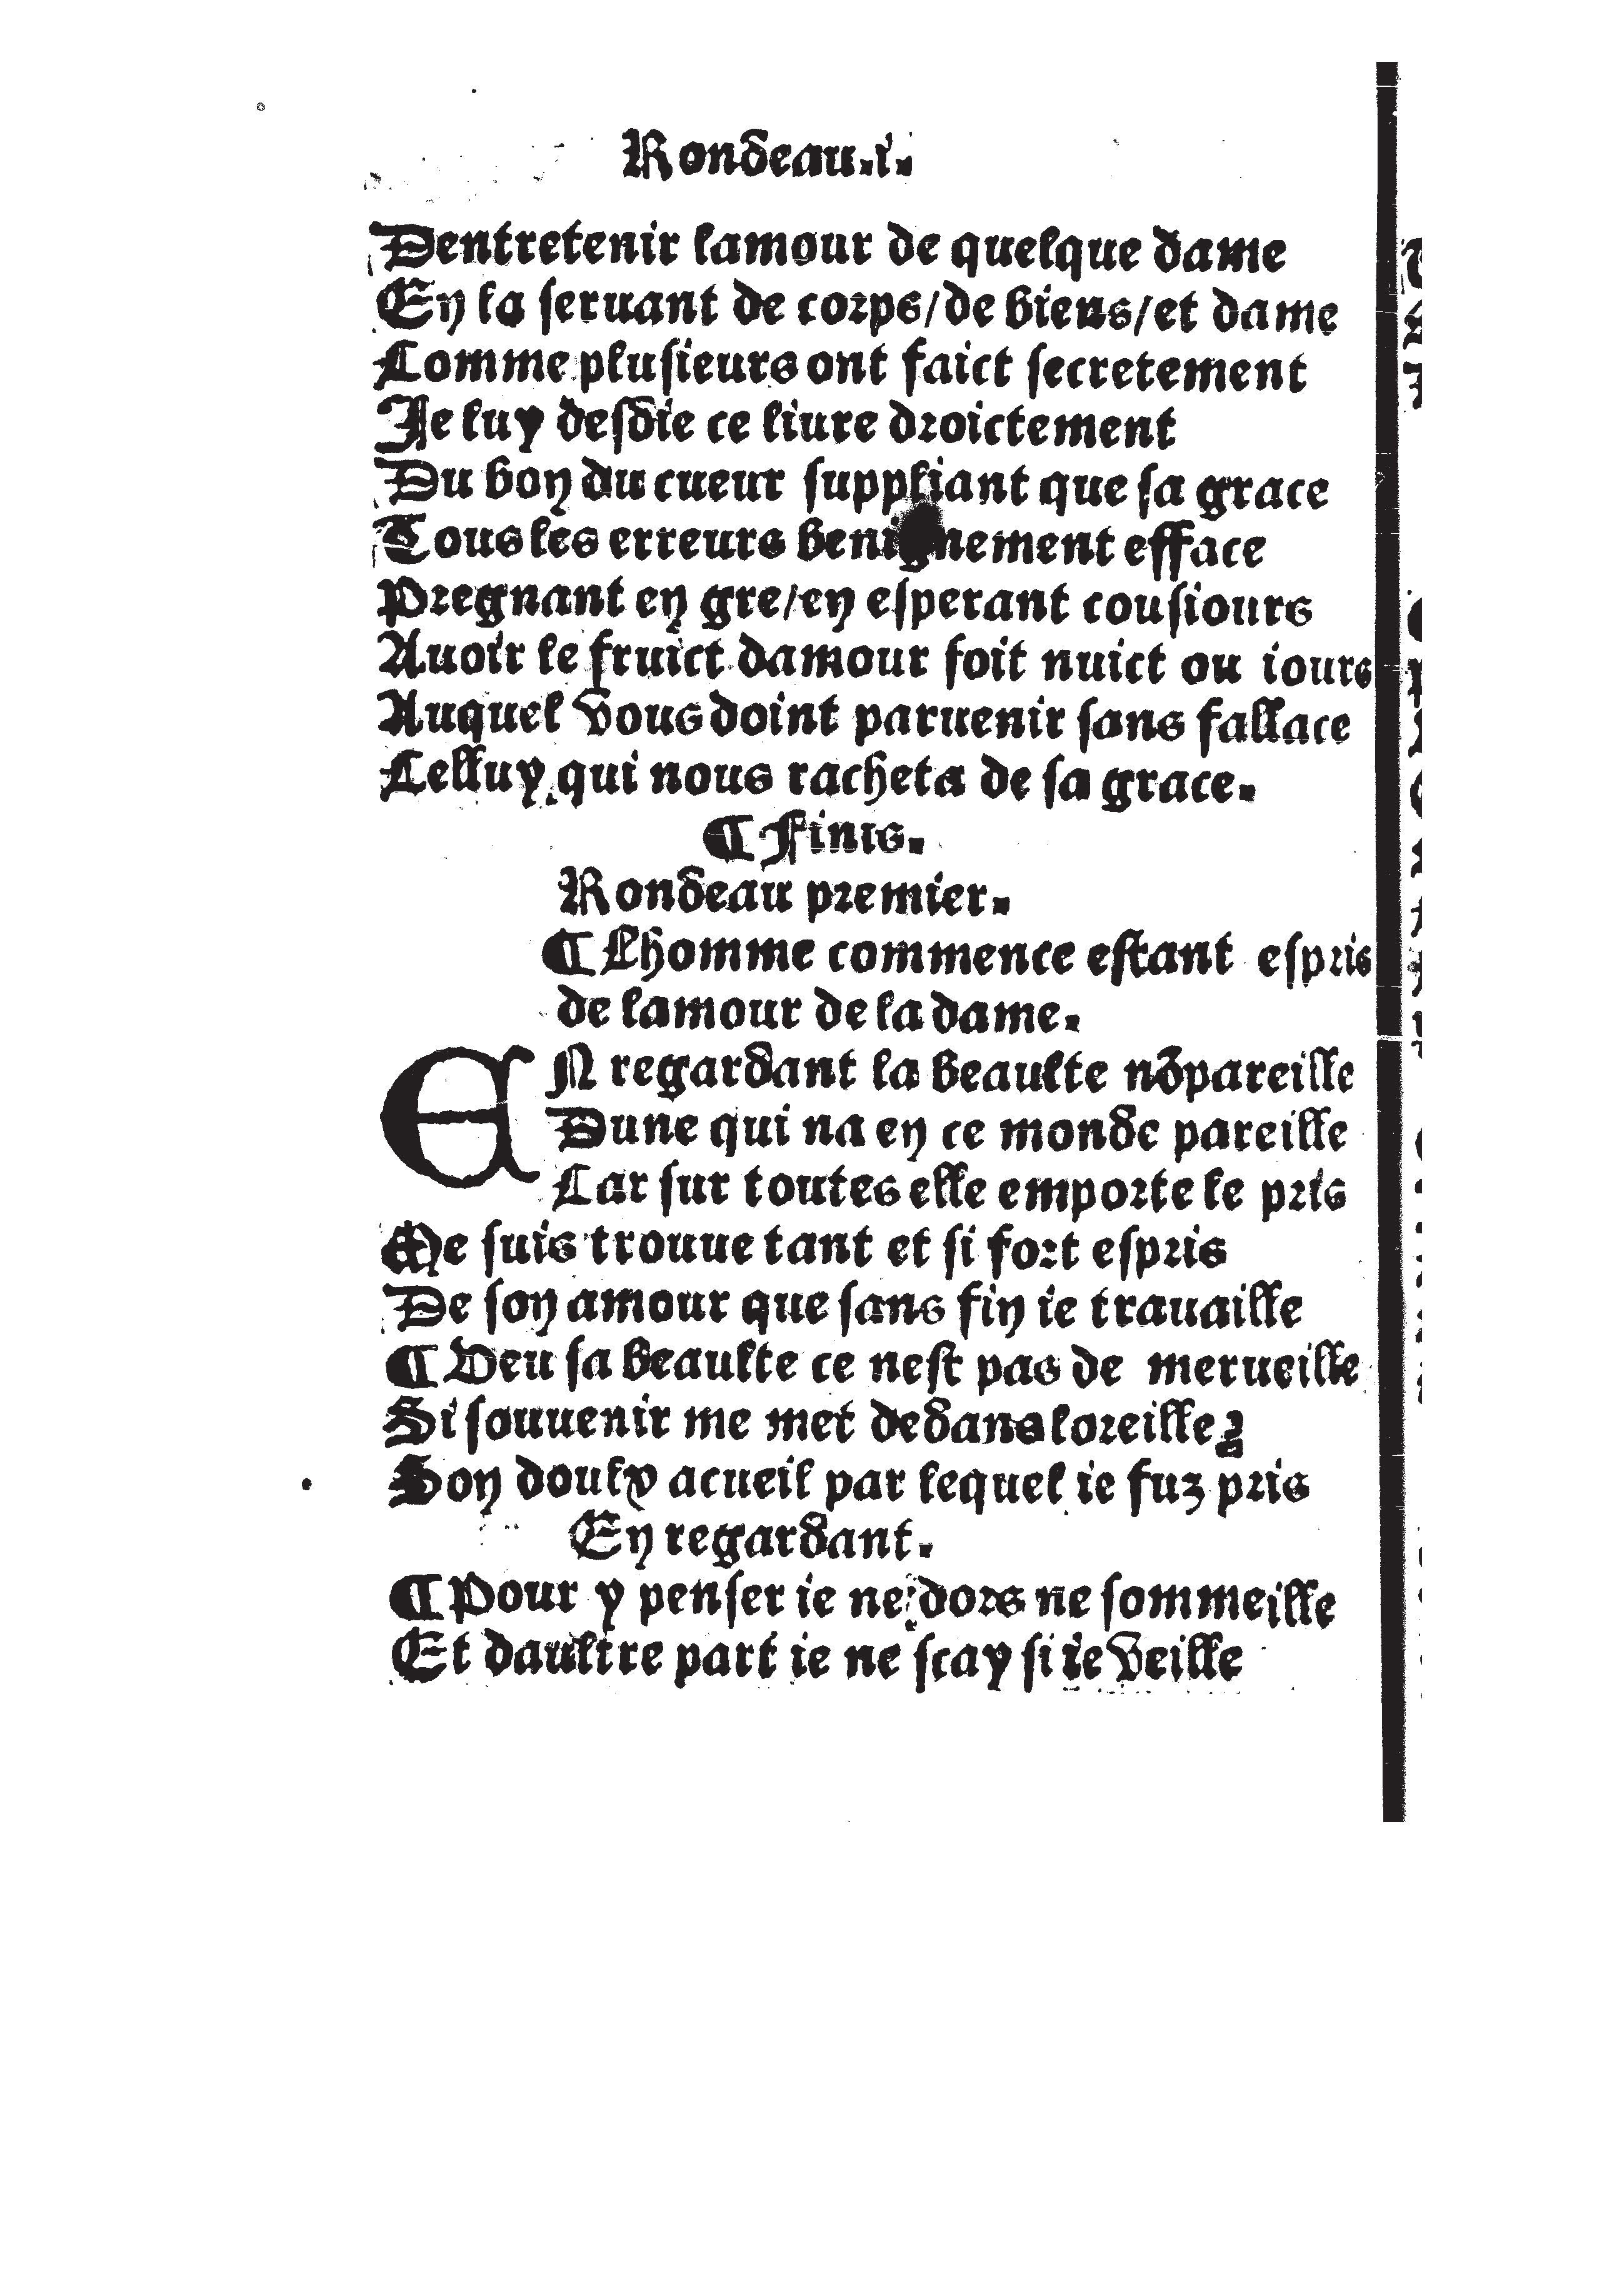 Rondeau.i.
Dentretenir lamour de quelque dame
En la seruant de corps/de biens/et dame
Comme plusieurs ont faict secretement
Je luy desdie ce liure droictement
Du bon du cueur suppliant que sa grace
Tous les erreurs benignement efface
Pregnant en gre/en esperant cousiours
Auoir le fruict damour soit nuict ou iours
Auquel vous doint paruenir sans fallace
Celluy qui nous racheta de sa grace.
¶ Finis.
Rondeau premier.
¶ Lhomme commence estant espris
de lamour de la dame.
EN regardant la beaulte nõpareille
Dune qui na en ce monde pareille
Car sur toutes elle emporte le pris
Me suis trouue tant et si fort espris
De son amour que sans fin ie trauaille
¶ Veu sa beaulte ce nest pas de merueille
Si souuenir me met dedans loreille
Son doulx acueil par lequel ie fuz pris
En regardant.
¶ Pour y penser ie ne dors ne sommeille
Et daultre part ie ne scay si ie veille